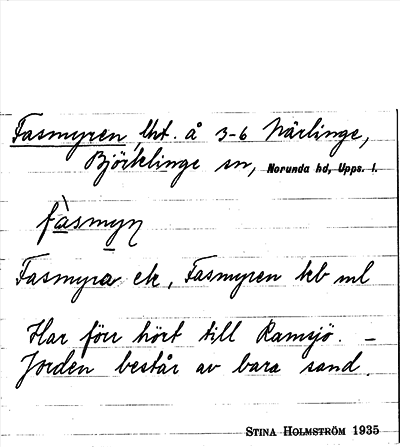 Fasmyren, lht. å 3-6 Närlinge,
Björklinge sn, Norunda hd, Upps. l.
fàsmyṇ
Fasmyra ek, Fasmyren kb ml
Har förr hört till Ramsjö. –
Jorden består av bara sand.
STINA HOLMSTRÖM 1935